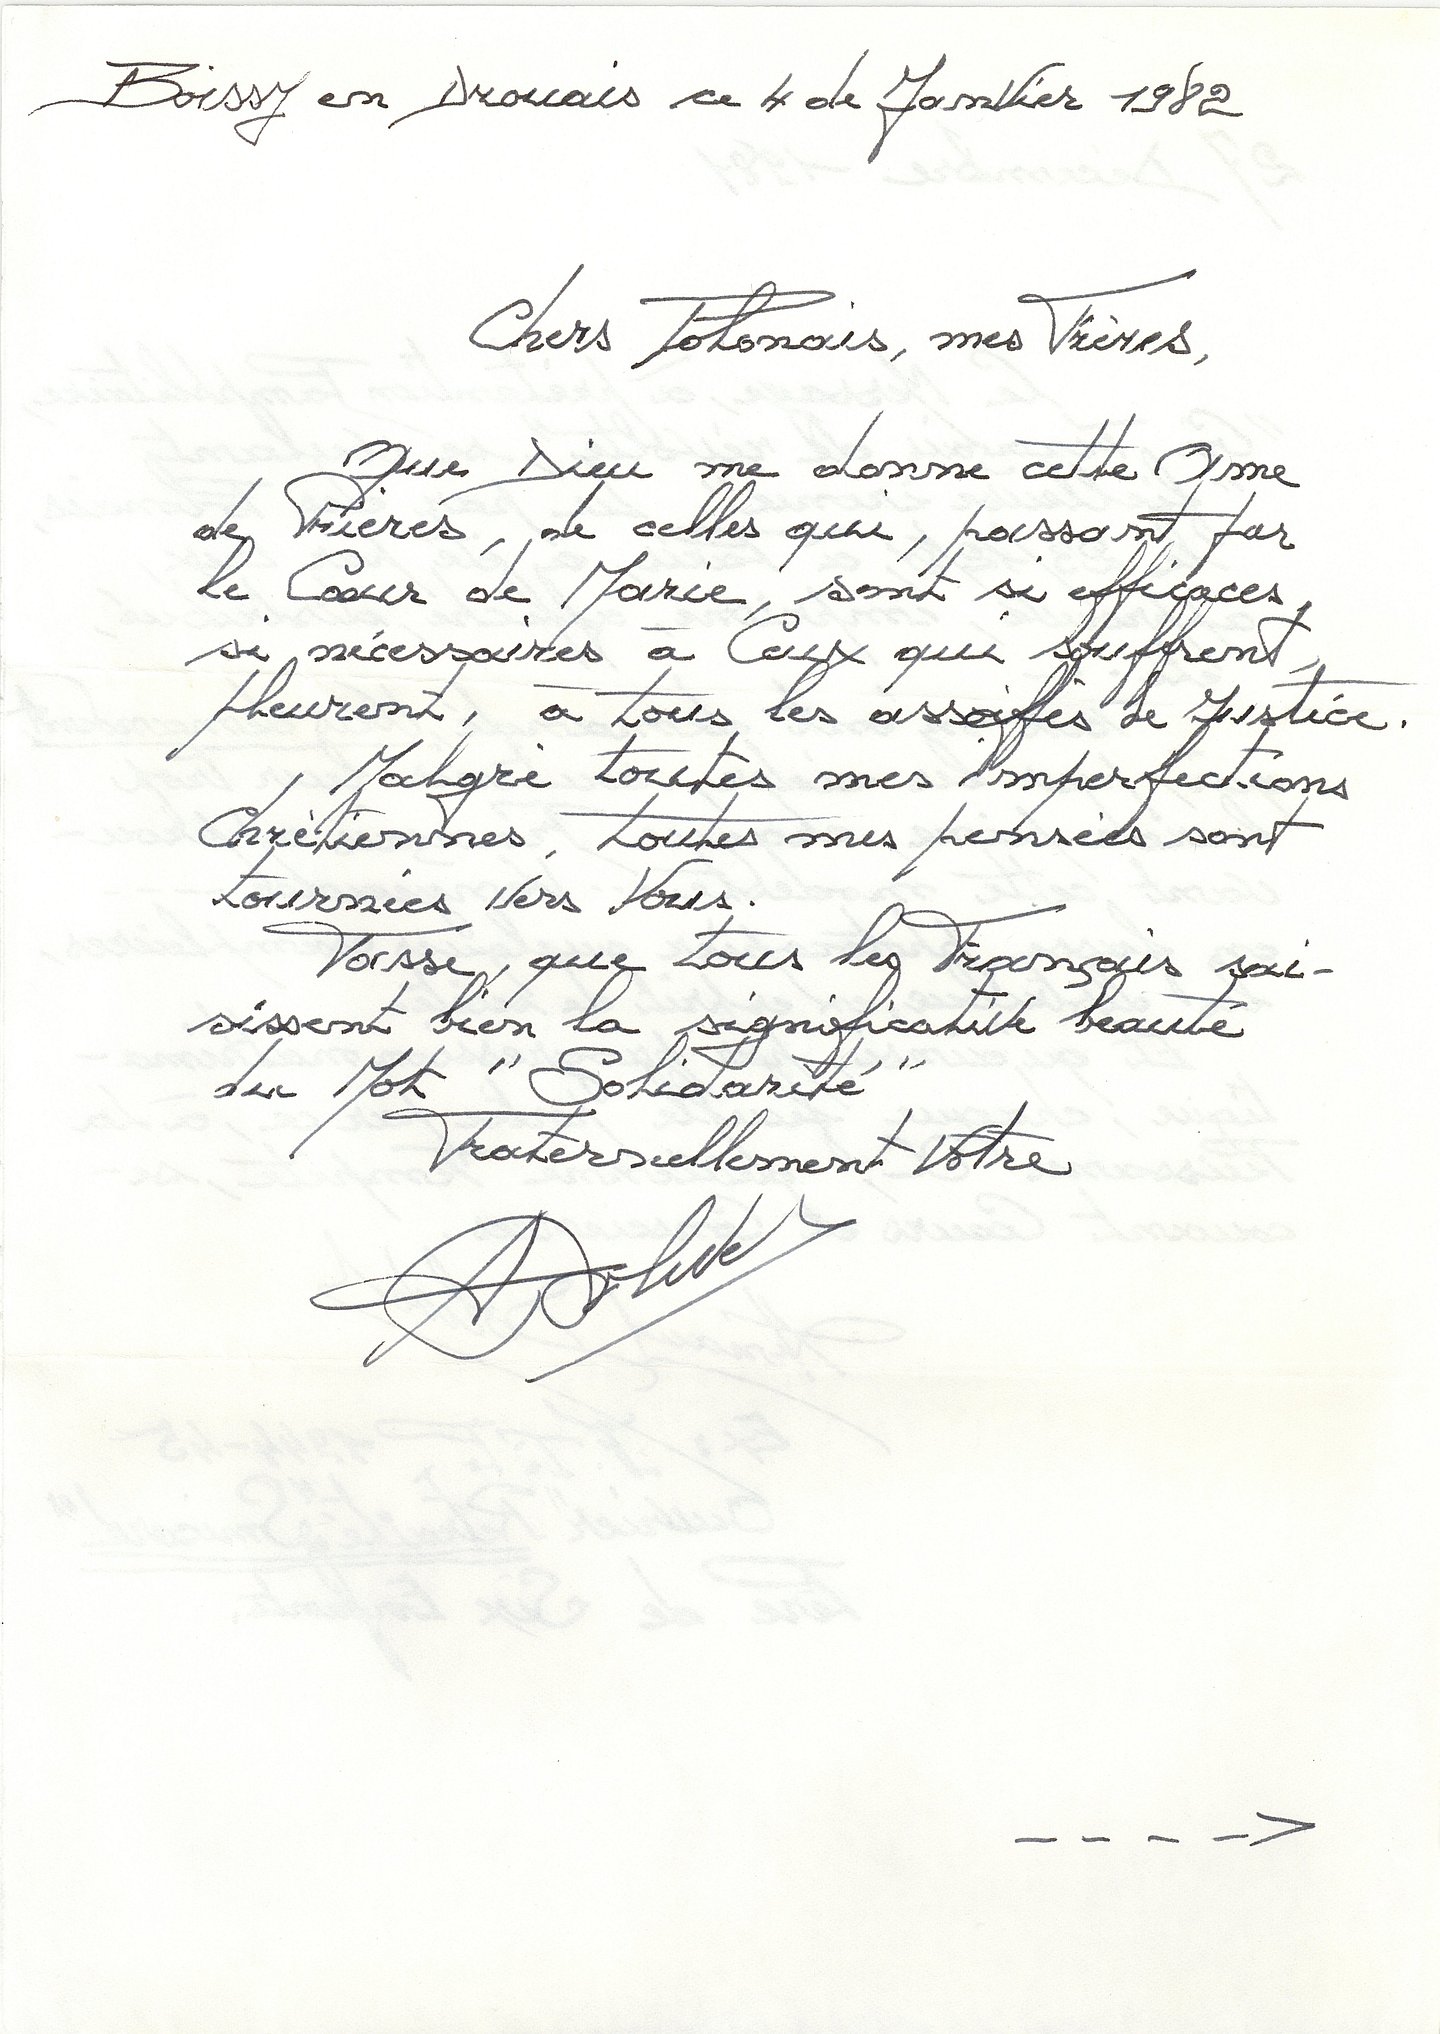 Boissy en Drouais ce 4 de Janvier 1982
Chers Polonais, mes Frères,
Que Dieu me donne cette Âme
de Prières, de celles qui, passant par
le Cœur de Marie, sont si efficaces,
si nécessaires à Ceux qui souffrent,
pleurent, à tous les assoiffés de Justice.
Malgré toutes mes imperfections
Chrétiennes, toutes mes pensées sont
tournées vers Vous.
Fasse, que tous les Français sai-
sissent bien la significative beauté
du Mot "Solidarité"
Fraternellement Vôtre